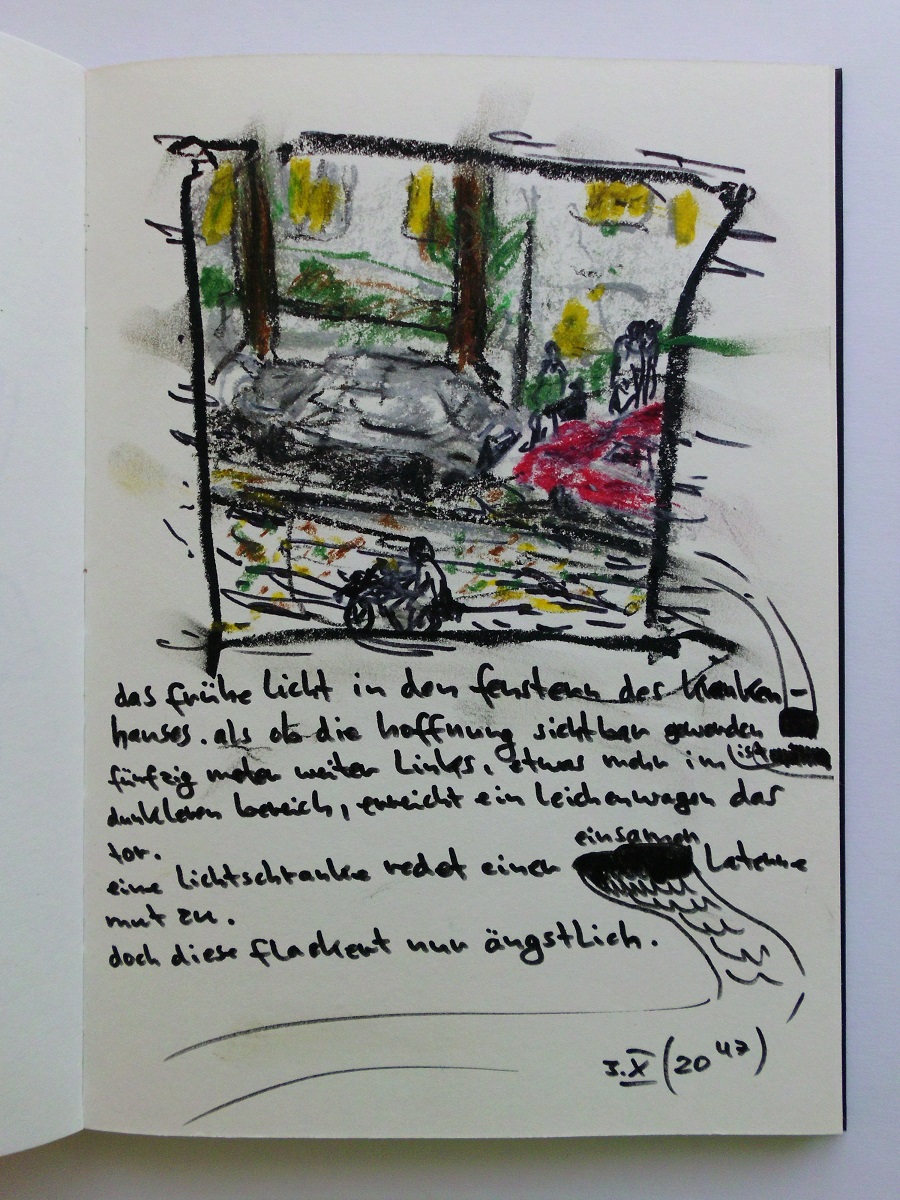 das frühe licht in den fenstern des kranken-
hauses. als ob die hoffnung sichtbar geworden
ist
fünfzig meter weiter links, etwas mehr im
dunkleren bereich, erreicht ein leichenwagen das
tor.
einsamen
eine lichtschranke redet einer Laterne
mut zu.
doch diese flackert nur ängstlich.
3.X (20 47)